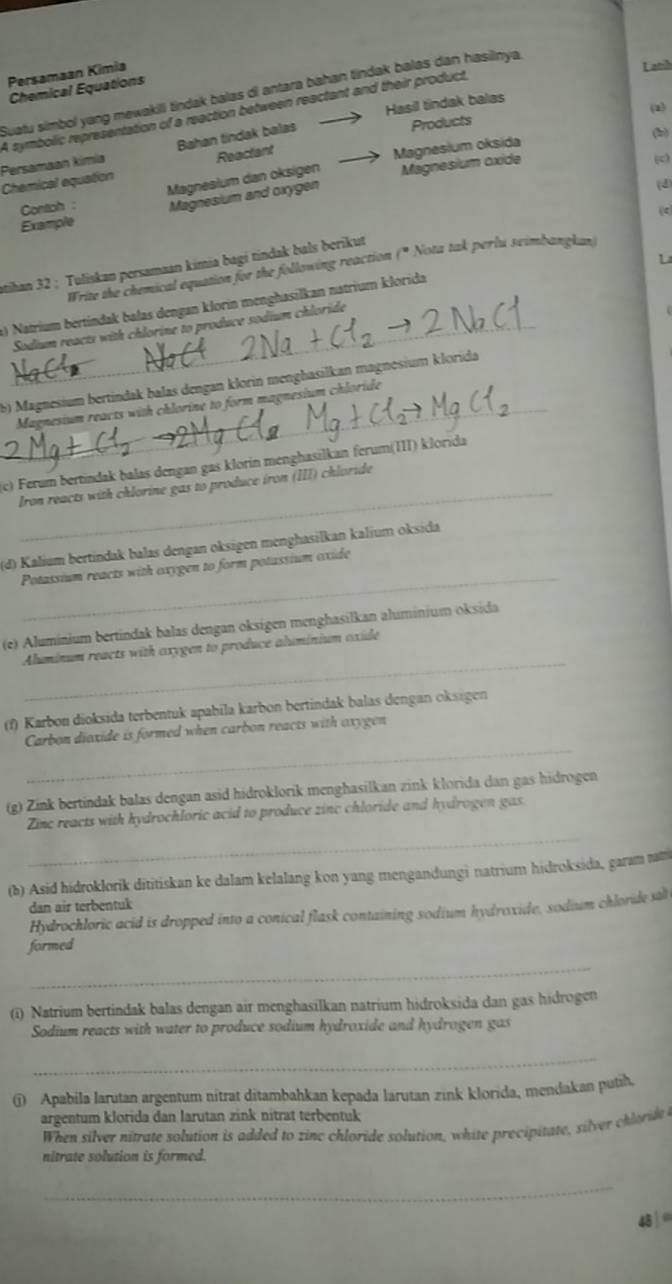 Persamaan Kimia
Chemical Equations
Suatu simbol yang mewakili tindak balas di antara bahan tindak balas dan hasilnya.
A symbolic representation of a reaction between reactant and their product.
Persamaan kimia Bahan tindak balas → Hasil tindak balas
Chemical equation Reactant Products
Contoh : Magnesium dan oksigen → Magnesium oksida
Example Magnesium and oxygen Magnesium oxide
Latih
(a)
(b)
(c)
(d)
(e)
La
atihan 32 ; Tuliskan persamaan kimia bagi tindak bals berikut
Write the chemical equation for the following reaction (* Nota tak perlu seimbangkan)
a) Natrium bertindak balas dengan klorin menghasilkan natrium klorida
Sodium reacts with chlorine to produce sodium chloride
2Na + Cl₂ → 2NaCl
b) Magnesium bertindak balas dengan klorin menghasilkan magnesium klorida
Magnesium reacts with chlorine to form magnesium chloride
2Mg + Cl₂ Mg + Cl₂ → MgCl₂
(c) Ferum bertindak balas dengan gas klorin menghasilkan ferum(III) klorida
Iron reacts with chlorine gas to produce iron (III) chloride
(d) Kalium bertindak balas dengan oksigen menghasilkan kalium oksida
Potassium reacts with oxygen to form potassium oxide
(e) Aluminium bertindak balas dengan oksigen menghasilkan aluminium oksida
Aluminum reacts with oxygen to produce aluminium oxide
(f) Karbon dioksida terbentuk apabila karbon bertindak balas dengan oksigen
Carbon dioxide is formed when carbon reacts with oxygen
(g) Zink bertindak balas dengan asid hidroklorik menghasilkan zink klorida dan gas hidrogen
Zinc reacts with hydrochloric acid to produce zinc chloride and hydrogen gas.
(h) Asid hidroklorik dititiskan ke dalam kelalang kon yang mengandungi natrium hidroksida, garam
dan air terbentuk
Hydrochloric acid is dropped into a conical flask containing sodium hydroxide, sodium chloride salt
formed
(i) Natrium bertindak balas dengan air menghasilkan natrium hidroksida dan gas hidrogen
Sodium reacts with water to produce sodium hydroxide and hydrogen gas
(j) Apabila larutan argentum nitrat ditambahkan kepada larutan zink klorida, mendakan putih,
argentum klorida dan larutan zink nitrat terbentuk
When silver nitrate solution is added to zinc chloride solution, white precipitate, silver chloride
nitrate solution is formed.
48 |